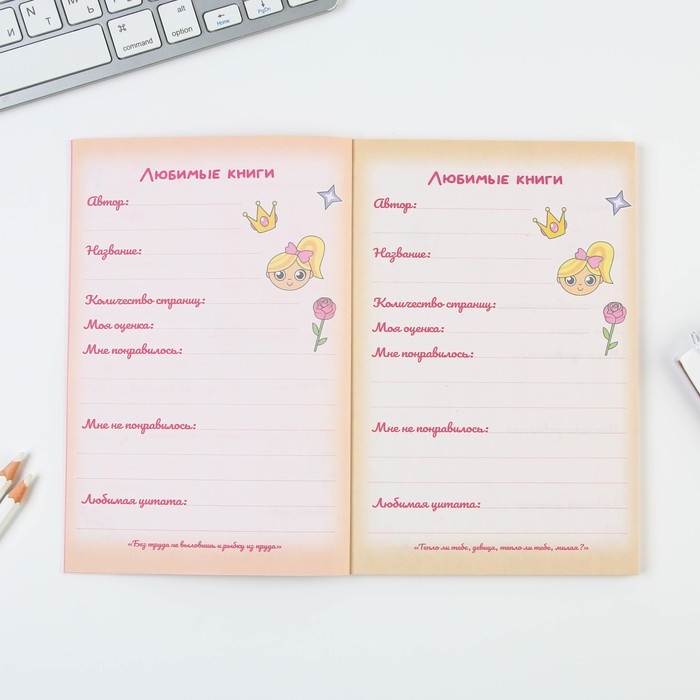 И
N
Т
Ь
⌘
command
alt
option
Home
PgDn
Любимые книги
Автор:
Название:
Количество страниц:
Моя оценка:
Мне понравилось:
Мне не понравилось:
Любимая цитата:
«Без труда не выловишь и рыбку из пруда»
Любимые книги
Автор:
Название:
Количество страниц:
Моя оценка:
Мне понравилось:
Мне не понравилось:
Любимая цитата:
«Тепло ли тебе, девица, тепло ли тебе, милая?»